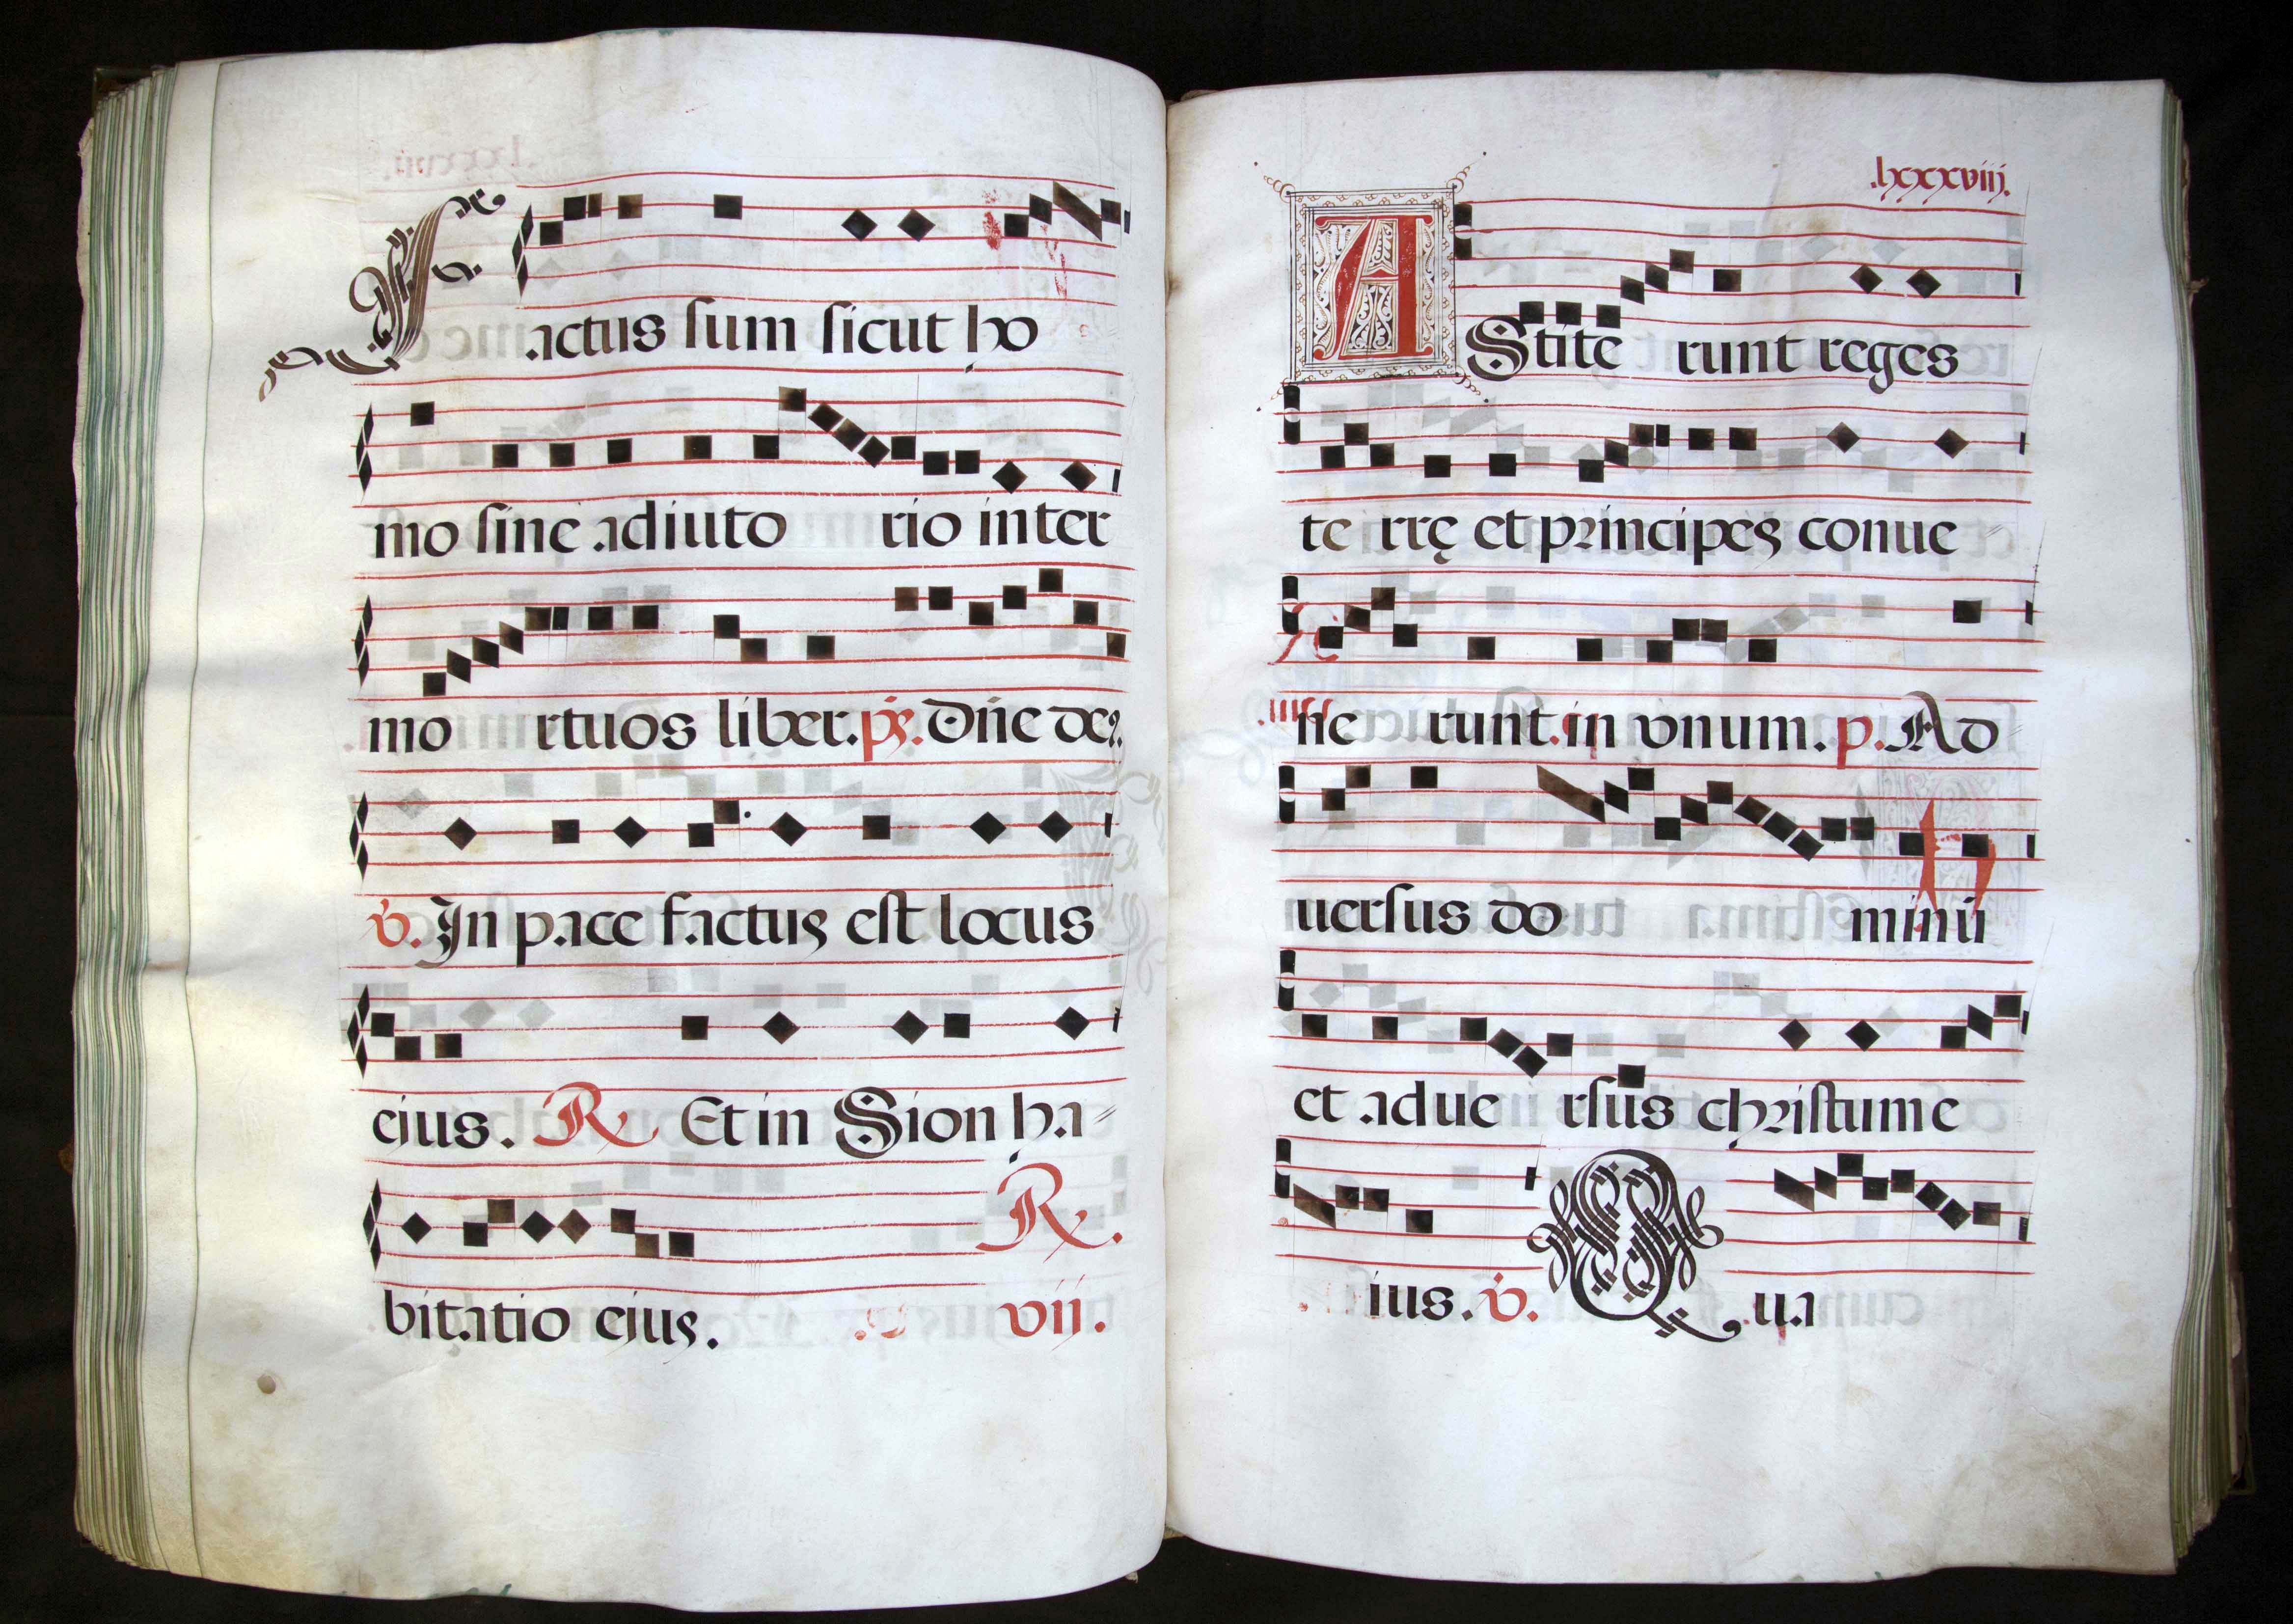 Factus sum sicut ho
mo sine adiuto rio inter
mo rtuos liber. ps. Dñe de9.
℣. In pace factus est locus
ejus. R Et in Sion ha=
bitatio ejus. R. vij.
.lxxxviij.
AStite runt reges
te rrę et principes conue=
ne runt in vnum. p. Ad
uersus do minū
et adue rsus christum e
ius. ℣. Qua